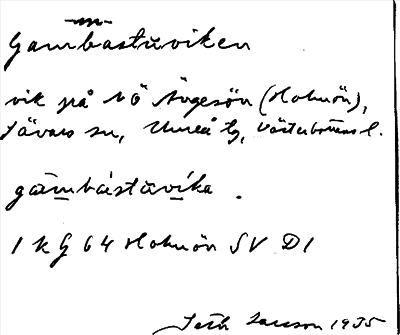 -m-
Gambastuviken
vik på NÖ Ängesön (Holmön),
Sävars sn, Umeå tg, Västerbottens l.
gambástuvíka .
1 kg 64 Holmön SV D1
Seth Larsson 1935